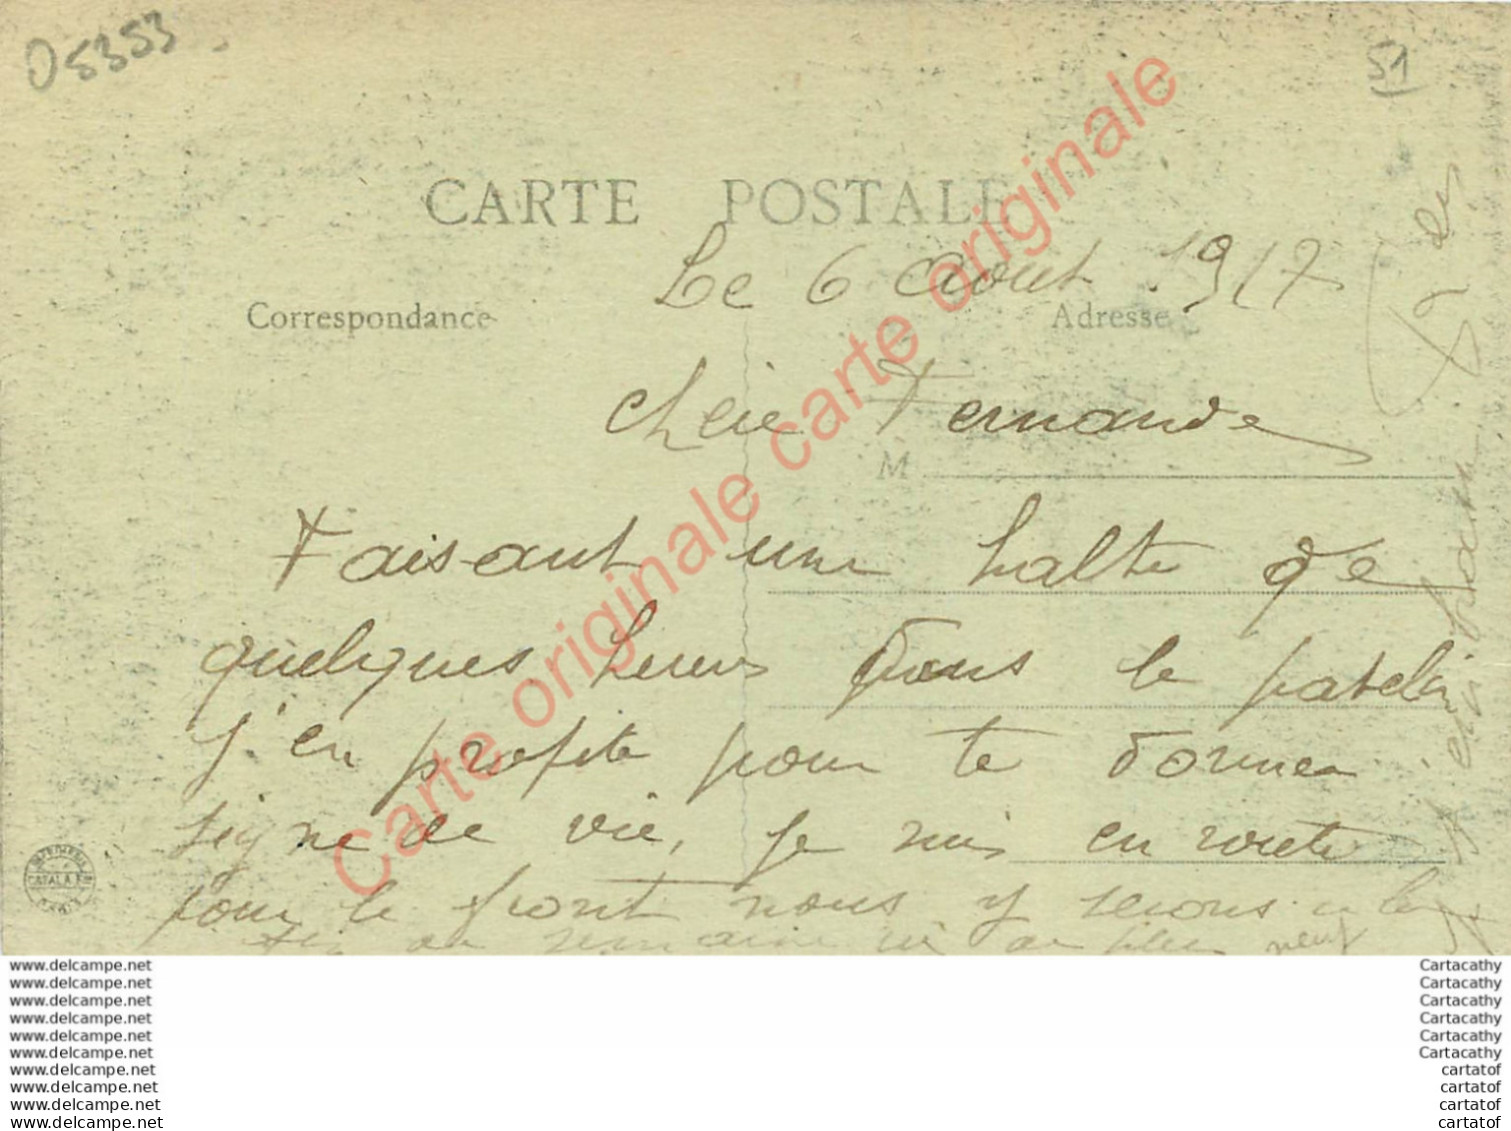 05353
51
CARTE POSTALE
Le 6 Aout 1917
Correspondance
Adresse
chère Fernande
M
Faisant une halte de
quelques heures dans le patelin
j'en profite pour te donner
signe de vie, je suis en route
pour le front nous y serons
de semaine
Carte originale carte originale
IMPRIMERIE
CATALA Frs
PARIS
www.delcampe.net
www.delcampe.net
www.delcampe.net
www.delcampe.net
www.delcampe.net
www.delcampe.net
www.delcampe.net
www.delcampe.net
www.delcampe.net
www.delcampe.net
Cartacathy
Cartacathy
Cartacathy
Cartacathy
Cartacathy
Cartacathy
cartatof
cartatof
cartatof
cartatof